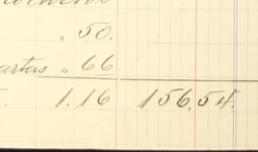 „ 50.
artas „ 66
1.16 156.54.